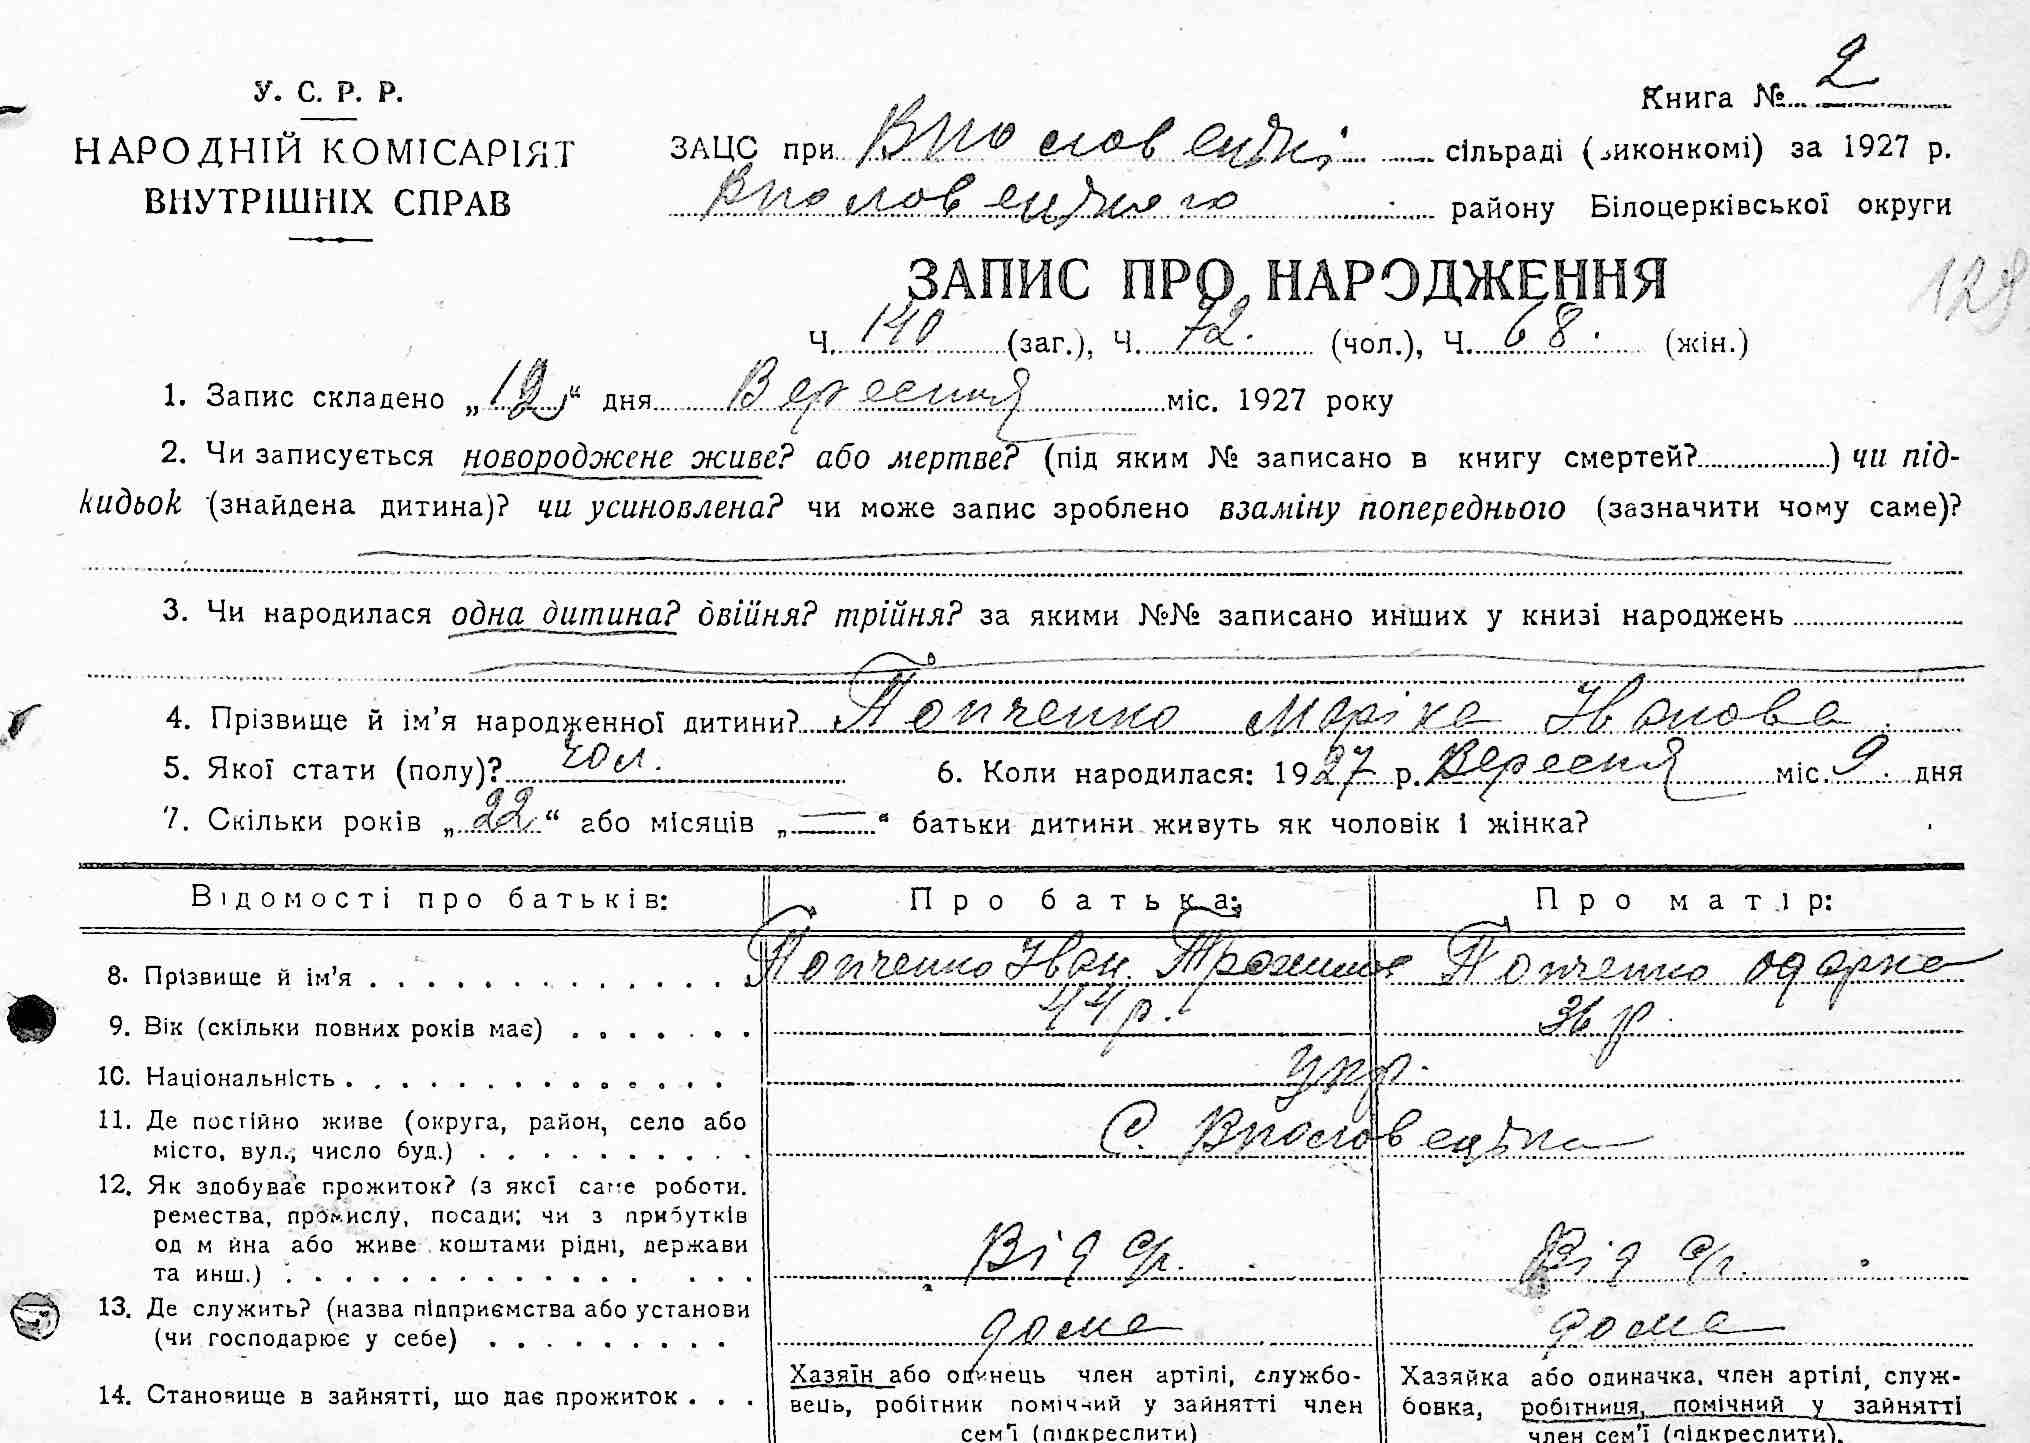 У. С. Р. Р.
НАРОДНІЙ КОМІСАРІЯТ
ВНУТРІШНІХ СПРАВ
Книга № 2
ЗАЦС при сільраді (виконкомі) за 1927 р.
району Білоцерківської округи
ЗАПИС ПРО НАРОДЖЕННЯ
128
Ч. 140 (заг.), Ч. 72. (чол.), Ч. 68. (жін.)
1. Запис складено „12“ дня Вересня міс. 1927 року
2. Чи записується новороджене живе? або мертве? (під яким № записано в книгу смертей?) чи під-
кидьок (знайдена дитина)? чи усиновлена? чи може запис зроблено взаміну попереднього (зазначити чому саме)?
3. Чи народилася одна дитина? двійня? трійня? за якими №№ записано инших у книзі народжень
4. Прізвище й ім’я народженної дитини? Попченко Іванова
5. Якої стати (полу)? чол. 6. Коли народилася: 1927 р. Вересня міс. 9. дня
7. Скільки років „22“ або місяців „—“ батьки дитини живуть як чоловік і жінка?
Відомості про батьків: Про батька: Про матір:
8. Прізвище й ім’я Попченко Іван. Попченко Одарка
9. Вік (скільки повних років має) 44 р. 36 р.
10. Національність укр.
11. Де постійно живе (округа, район, село або
місто, вул., число буд.) С.
12. Як здобуває прожиток? (з якої саме роботи.
ремества, промислу, посади; чи з прибутків
од м йна або живе коштами рідні, держави
та инш.) Від с/г. Від с/г.
13. Де служить? (назва підприємства або установи
(чи господарює у себе) дома дома
14. Становище в зайнятті, що дає прожиток
Хазяїн або одинець член артілі, службо-
вець, робітник помічний у зайнятті член
сем’ї (підкреслити)
Хазяйка або одиначка, член артілі, служ-
бовка, робітниця, помічний у зайнятті
член сем’ї (підкреслити).